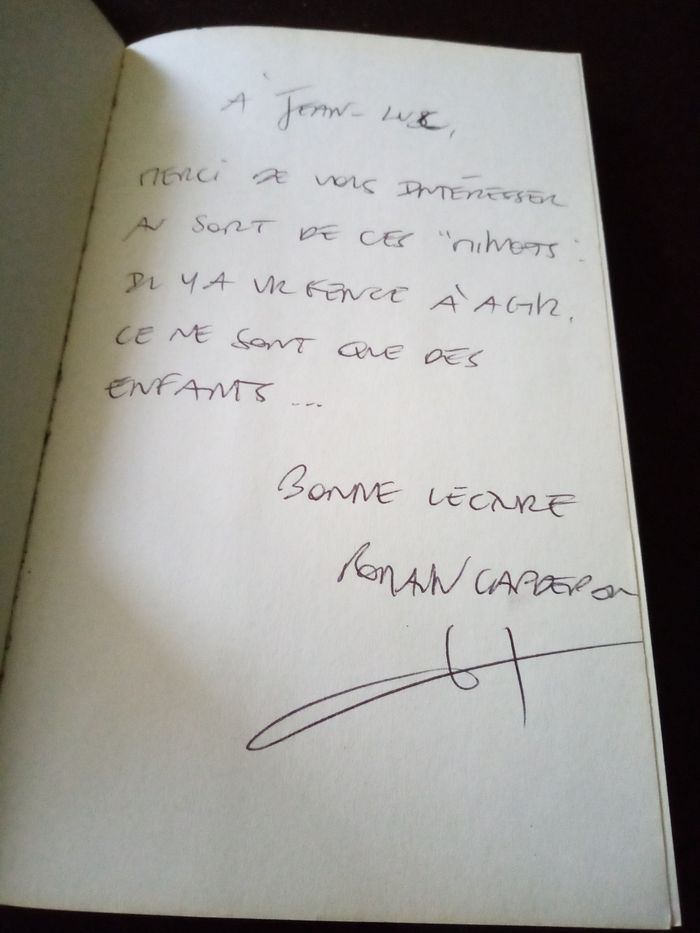 À JEAN-LUC,
MERCI DE VOUS INTÉRESSER
AU SORT DE CES "MINOTS".
IL Y A URGENCE À AGIR.
CE NE SONT QUE DES
ENFANTS ...
BONNE LECTURE
ROMANN CARDERON